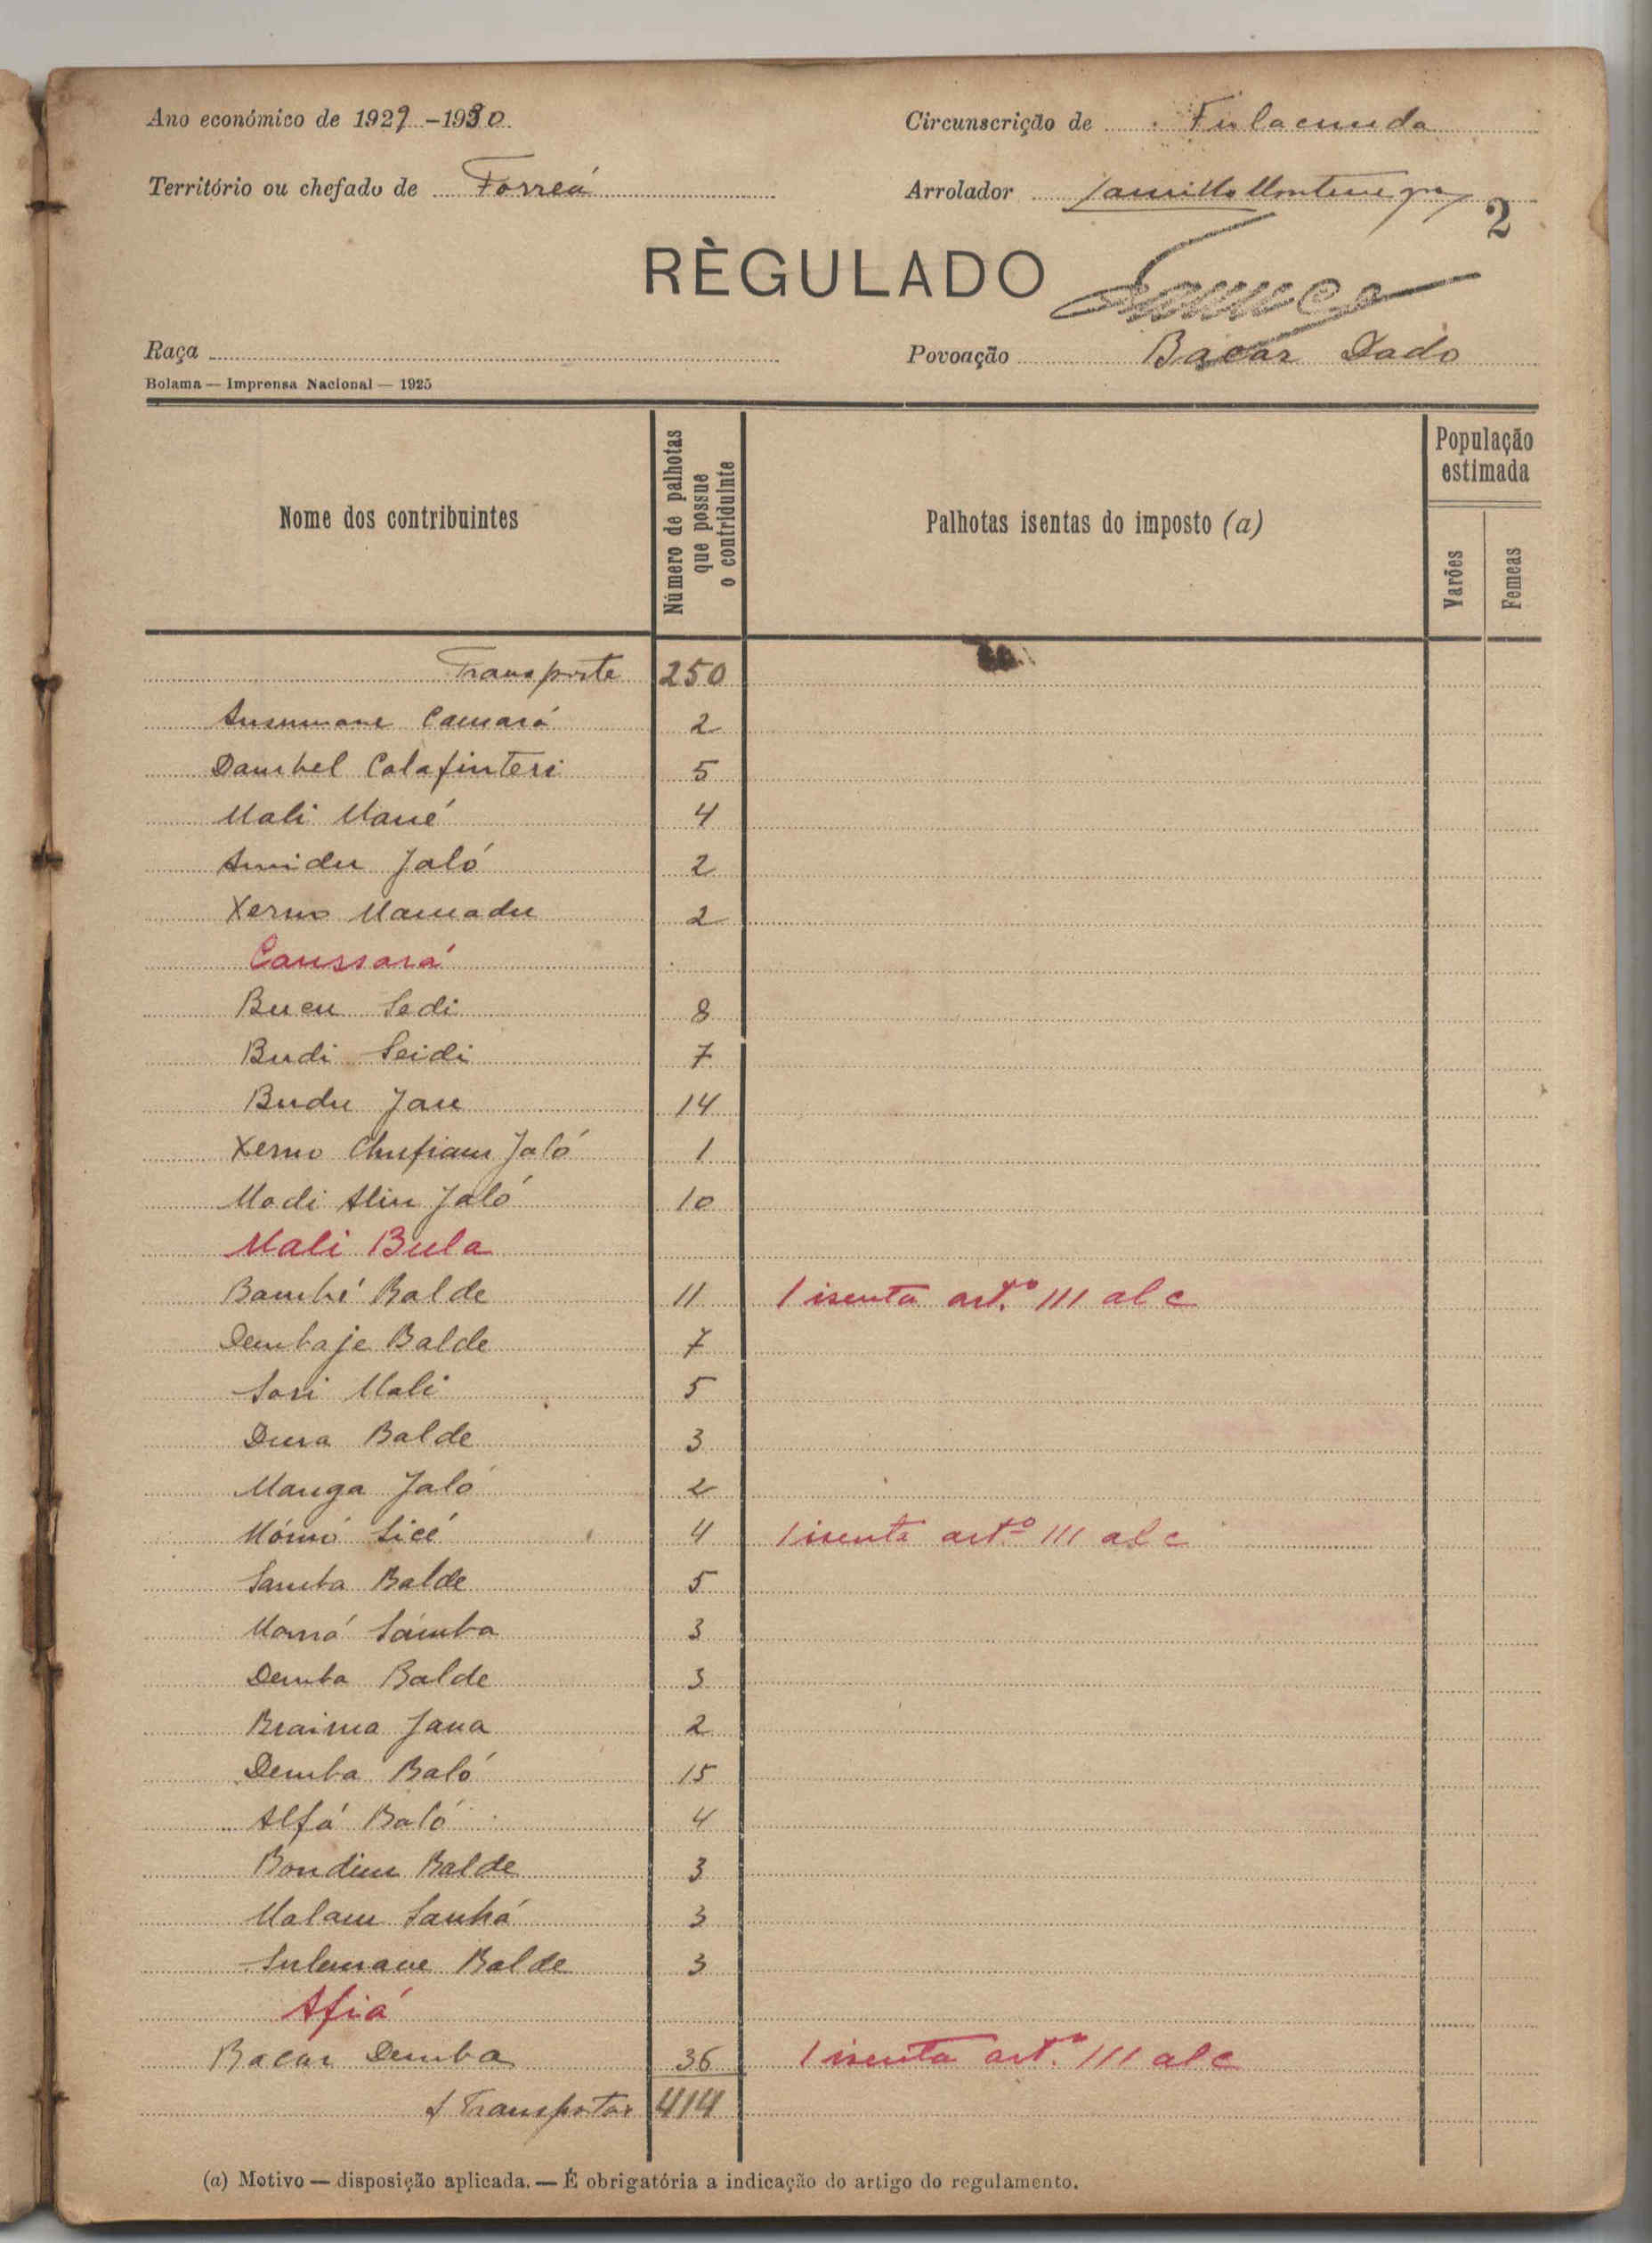 Ano económico de 1929-1930
Circunscrição de Fulacunda
Território ou chefado de Forreá
Arrolador
2
RÈGULADO
Raça
Povoação Bacar Dado
Bolama — Imprensa Nacional — 1925
Nome dos contribuintes
Número de palhotas que possue o contriduinte
Palhotas isentas do imposto (a)
População estimada
Varões
Femeas
Transporte 250
Ansumane Camará 2
Dambel Colafinteri 5
Mali Mané 4
Amidu Jaló 2
Xerno Mamadu 2
Caussará
Bucu Sedi 8
Budi Seidi 7
Budu Jau 14
Xerno Chufiam Jaló 1
Modi Aliu Jaló 10
Mali Bula
Bambé Balde 11 1 isenta art.º 111 al c
Dembaje Balde 7
Sori Mali 5
Dura Balde 3
Manga Jaló 2
Mómó Sicé 4 1 isenta artº 111 al c
Samba Balde 5
Mamá Samba 3
Demba Balde 3
Braima Jana 2
Demba Baló 15
Alfá Baló 4
Bondim Balde 3
Malam Sanhá 3
Sulemane Balde 3
Afiá
Bacar Demba 36 1 isenta art.º 111 al c
A Transportar 414
(a) Motivo — disposição aplicada. — É obrigatória a indicação do artigo do regulamento.